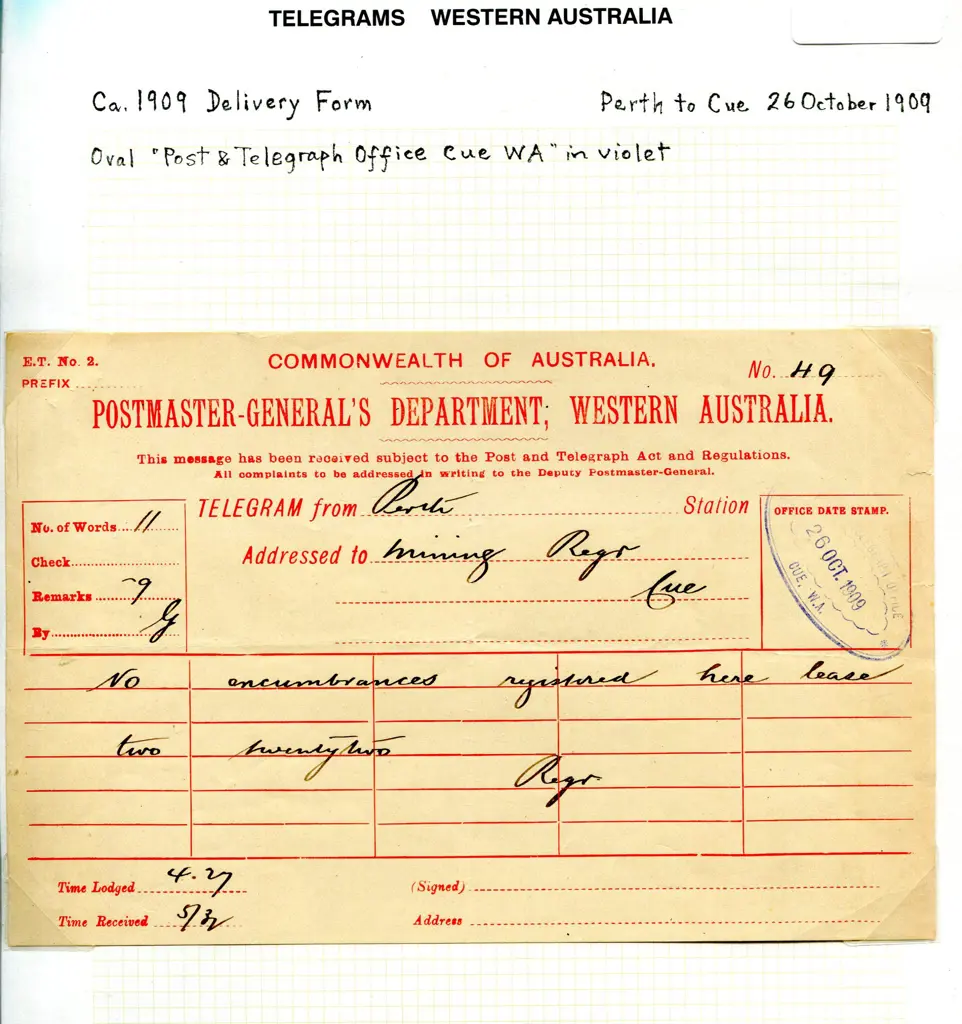 TELEGRAMS WESTERN AUSTRALIA
Ca. 1909 Delivery Form
Perth to Cue 26 October 1909
Oval "Post & Telegraph Office Cue WA" in violet
E.T. No. 2.
COMMONWEALTH OF AUSTRALIA.
No. 49
PREFIX
POSTMASTER-GENERAL'S DEPARTMENT; WESTERN AUSTRALIA.
This message has been received subject to the Post and Telegraph Act and Regulations.
All complaints to be addressed in writing to the Deputy Postmaster-General.
TELEGRAM from Perth Station
OFFICE DATE STAMP.
No. of Words 11
Addressed to Mining Regr
Check
Remarks 9
Cue
By G
26 OCT. 1909
CUE. W.A.
OFFICE
No encumbrances registered here lease
two twentytwo
Regr
Time Lodged 4.27
(Signed)
Time Received
Address